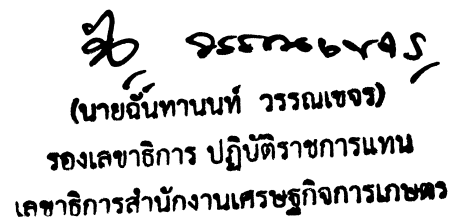 (นายฉันทานนท์ วรรณเขจร)
รองเลขาธิการ ปฏิบัติราชการแทน
เลขาธิการสำนักงานเศรษฐกิจการเกษตร